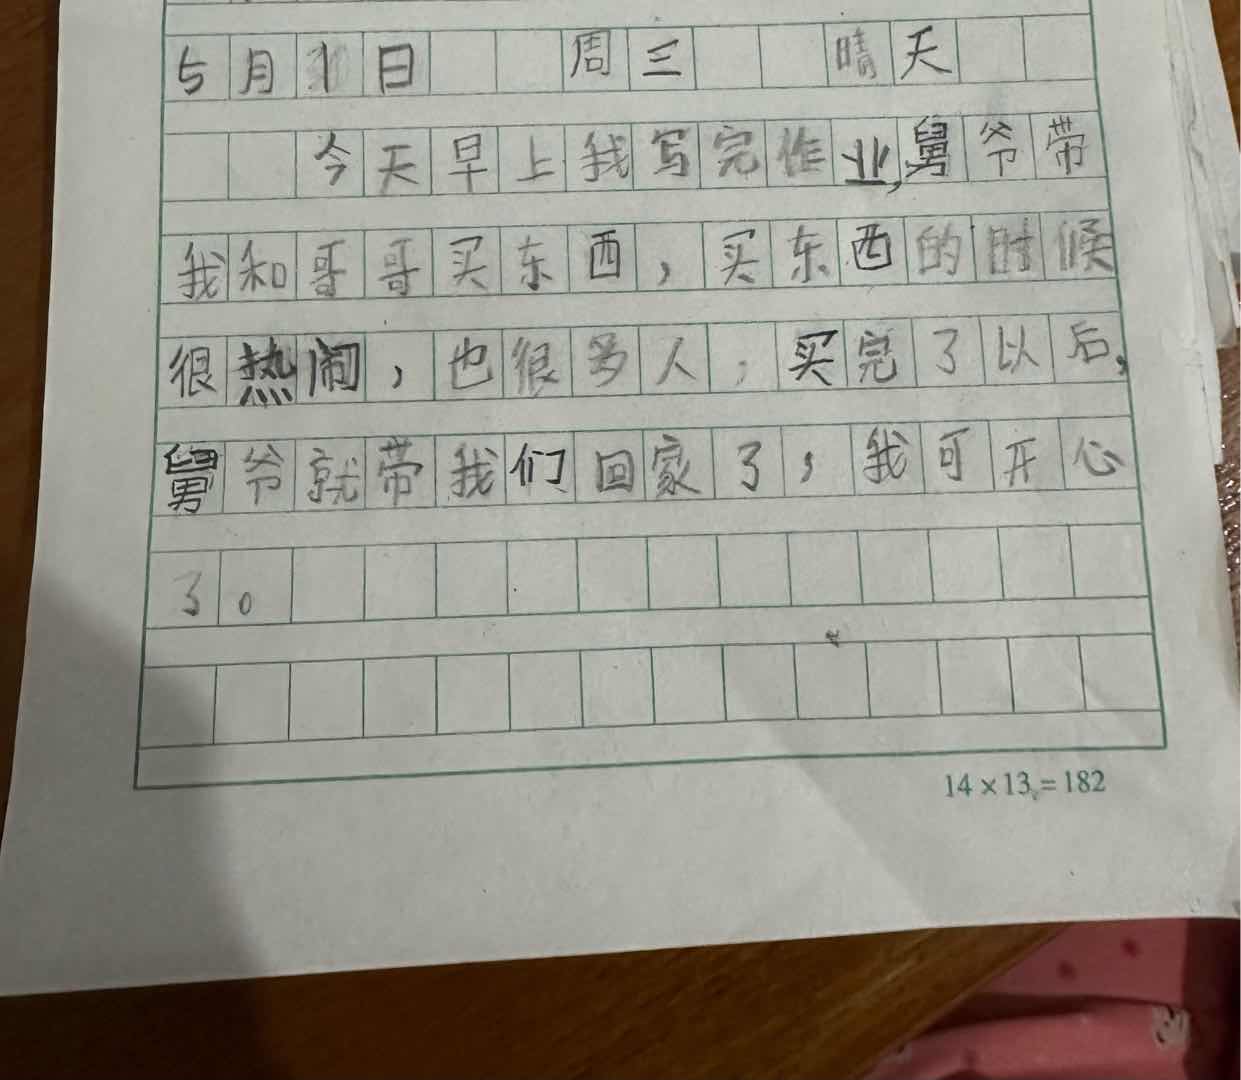 5月1日 周三 晴天
今天早上我写完作业,舅爷带
我和哥哥买东西，买东西的时候
很热闹，也很多人，买完了以后,
舅爷就带我们回家了，我可开心
了。
14×13=182